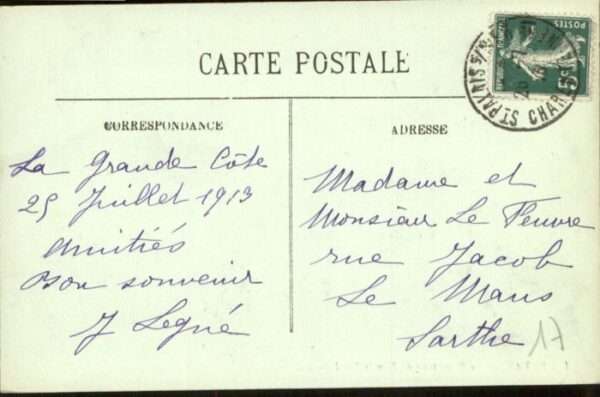 CARTE POSTALE
CORRESPONDANCE
ADRESSE
POSTES
ST PALAIS S/
CHAR
La Grande Côte
25 Juillet 1913
Amitiés
Bon souvenir
J Legné
Madame et
Monsieur Le Feuvre
rue Jacob
Le Mans
Sarthe
17